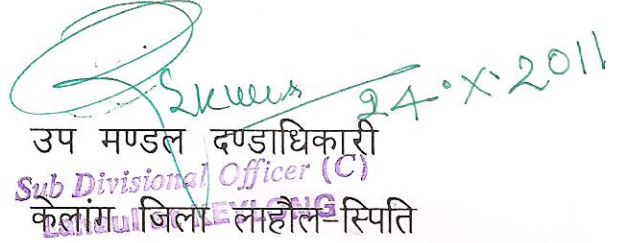 24.X.2011
उप मण्डल दण्डाधिकारी
Sub Divisional Officer (C)
केलांग जिला लाहौल-स्पिति
KEYLONG